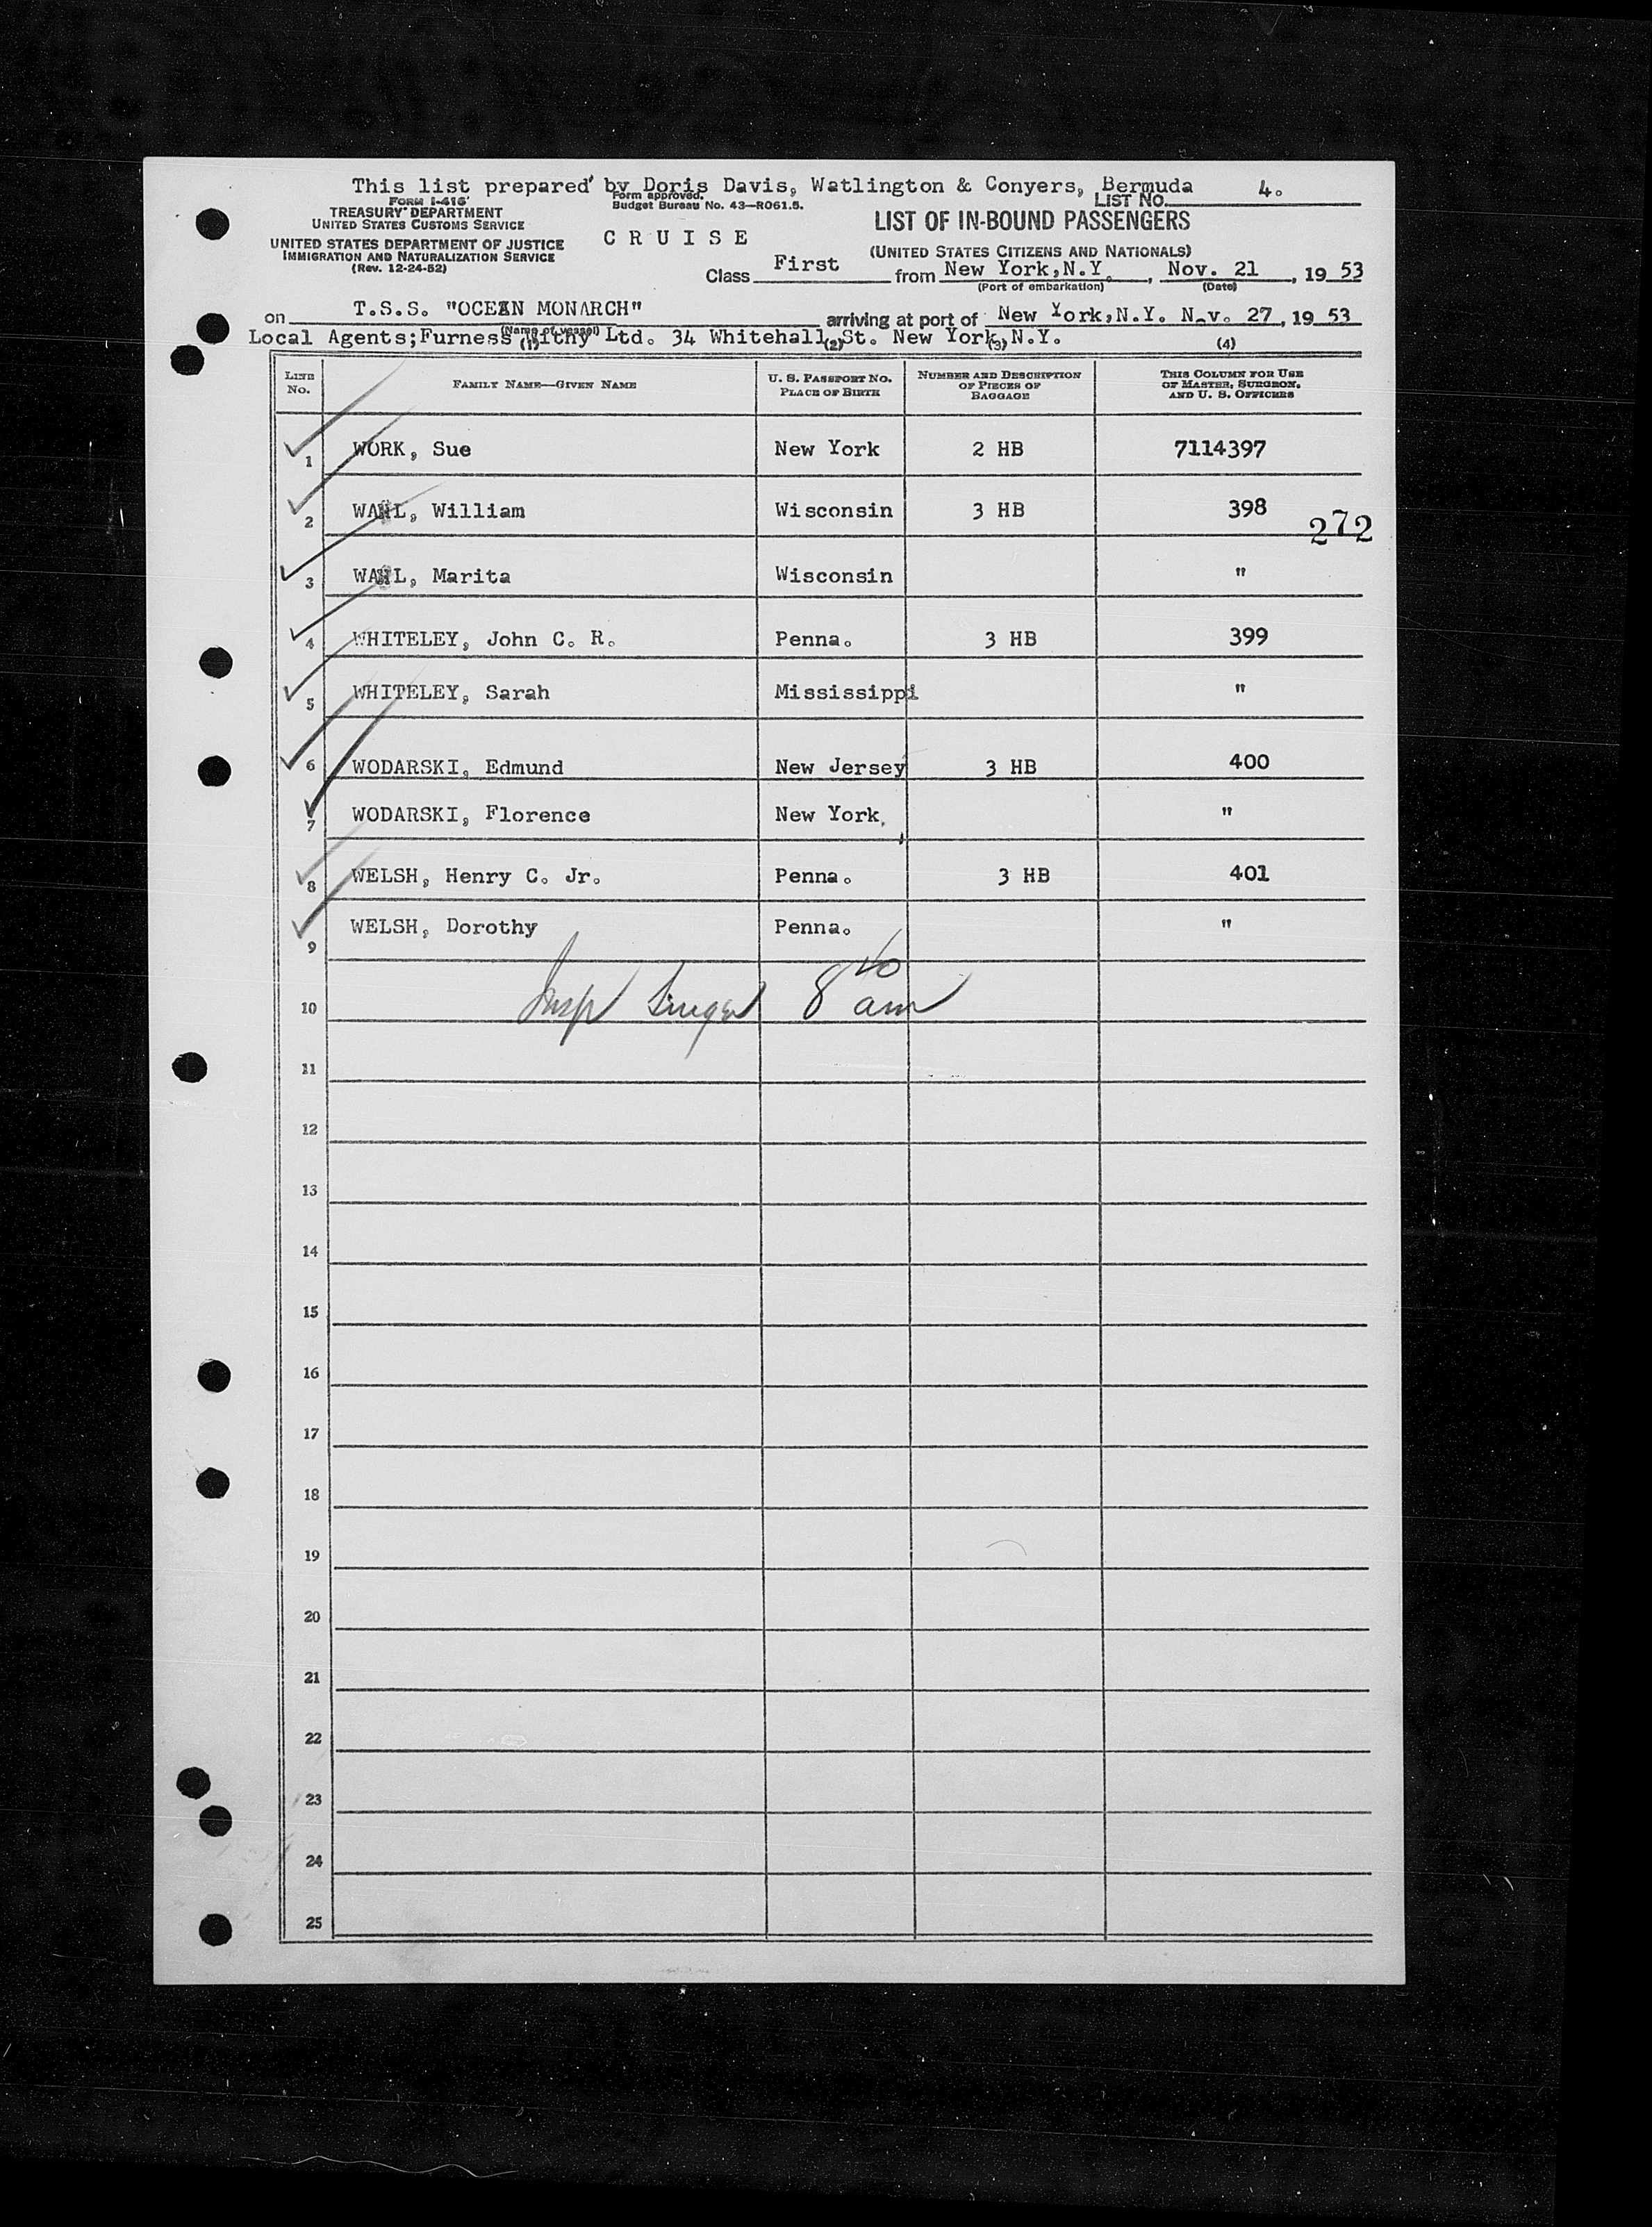 This list prepared by Doris Davis, Watlington & Conyers, Bermuda
LIST No. 4.
FORM I-416
TREASURY DEPARTMENT
UNITED STATES CUSTOMS SERVICE
UNITED STATES DEPARTMENT OF JUSTICE
IMMIGRATION AND NATURALIZATION SERVICE
(Rev. 12-24-52)
Form approved.
Budget Bureau No. 43—R061.5.
CRUISE
LIST OF IN-BOUND PASSENGERS
(UNITED STATES CITIZENS AND NATIONALS)
Class First from New York, N.Y., Nov. 21, 1953
(Port of embarkation) (Date)
on T.S.S. "OCEAN MONARCH" arriving at port of New York, N.Y. Nov. 27, 1953
(Name of vessel)
Local Agents; Furness Withy Ltd. 34 Whitehall St. New York, N.Y.
(1) (2) (3) (4)
LINE No. FAMILY NAME—GIVEN NAME U. S. PASSPORT No. PLACE OF BIRTH NUMBER AND DESCRIPTION OF PIECES OF BAGGAGE THIS COLUMN FOR USE OF MASTER, SURGEON, AND U. S. OFFICERS
1 WORK, Sue New York 2 HB 7114397
2 WAHL, William Wisconsin 3 HB 398
272
3 WAHL, Marita Wisconsin "
4 WHITELEY, John C. R. Penna. 3 HB 399
5 WHITELEY, Sarah Mississippi "
6 WODARSKI, Edmund New Jersey 3 HB 400
7 WODARSKI, Florence New York. "
8 WELSH, Henry C. Jr. Penna. 3 HB 401
9 WELSH, Dorothy Penna. "
10 Insp 8 40 am
11
12
13
14
15
16
17
18
19
20
21
22
23
24
25